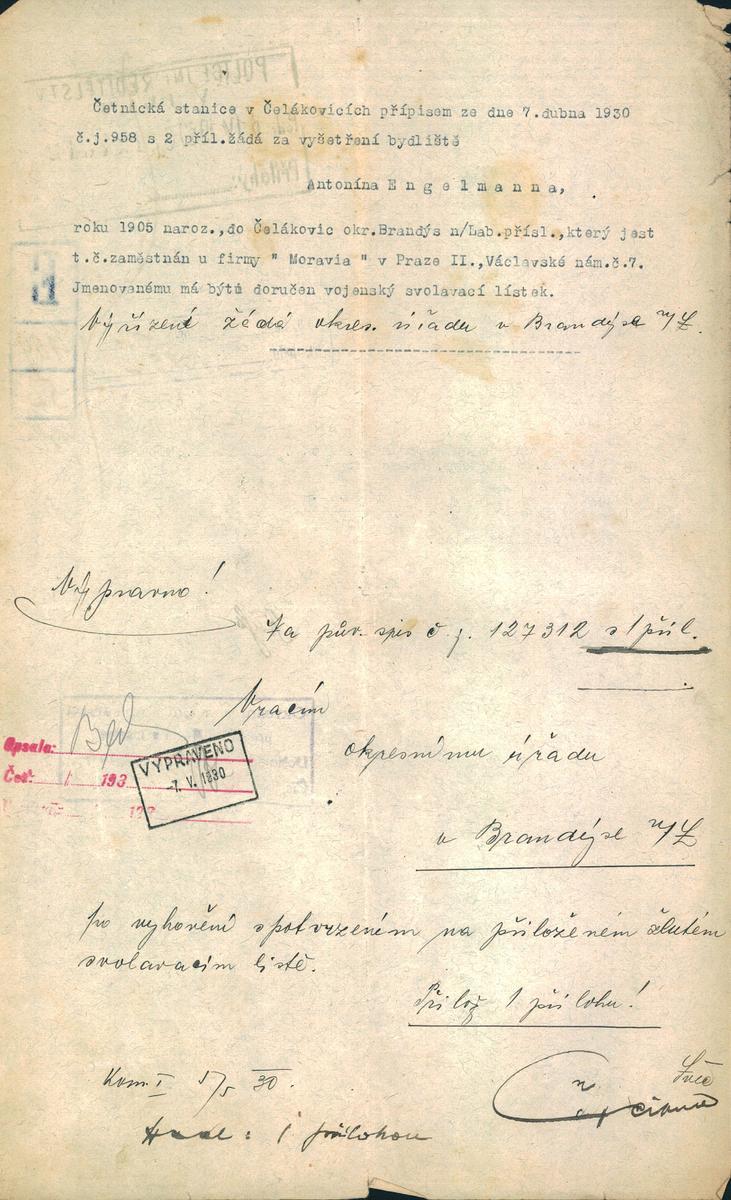 Četnická stanice v Čelákovicích přípisem ze dne 7.dubna 1930
č.j.958 s 2 příl.žádá za vyšetření bydliště
Antonína E n g e l m a n n a,
roku 1905 naroz.,do Čelákovic okr.Brandýs n/Lab.přísl.,který jest
t.č.zaměstnán u firmy " Moravia " v Praze II.,Václavské nám.č.7.
Jmenovanému má býti doručen vojenský svolavací lístek.
Vyřízení žádá okres. úřadu v Brandýse n/L.
Vypraveno!
Na pův. spis č. j. 127312 s 1 příl.
Vracím
okresnímu úřadu
Opsala:
VYPRAVENO
-7. V. 1930
Čet: 193
v Brandýse n/L
po vyhovění s potvrzeném na přiloženém žlutém
svolavacím listě.
Přilož 1 přílohu!
Kom. I 5/5 30.
1 přílohou